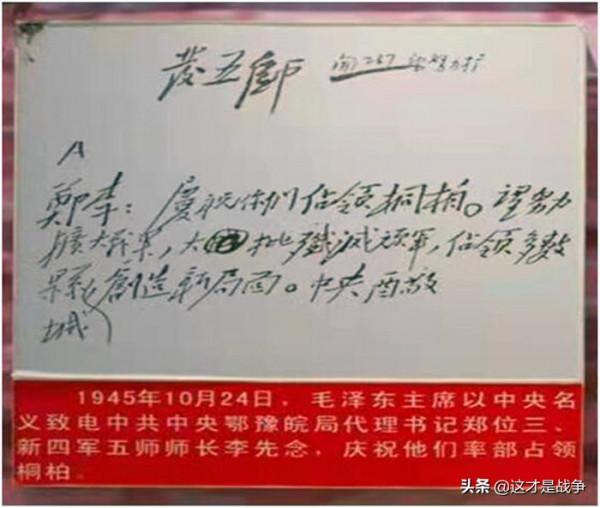 發五師
A
鄭李：慶祝你們佔領桐柏。望努力
擴大戰果，大批殲滅頑軍，佔領多數
縣城創造新局面。中央酉敬
1945年10月24日，毛泽东主席以中央名
义致电中共中央鄂豫皖局代理书记郑位三、
新四军五师师长李先念，庆祝他们率部占领
桐柏。
头条 @这才是战争